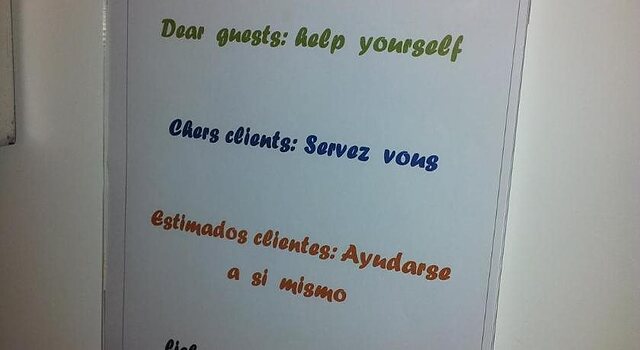 Dear guests: help yourself
Chers clients: Servez vous
Estimados clientes: Ayudarse
a si mismo